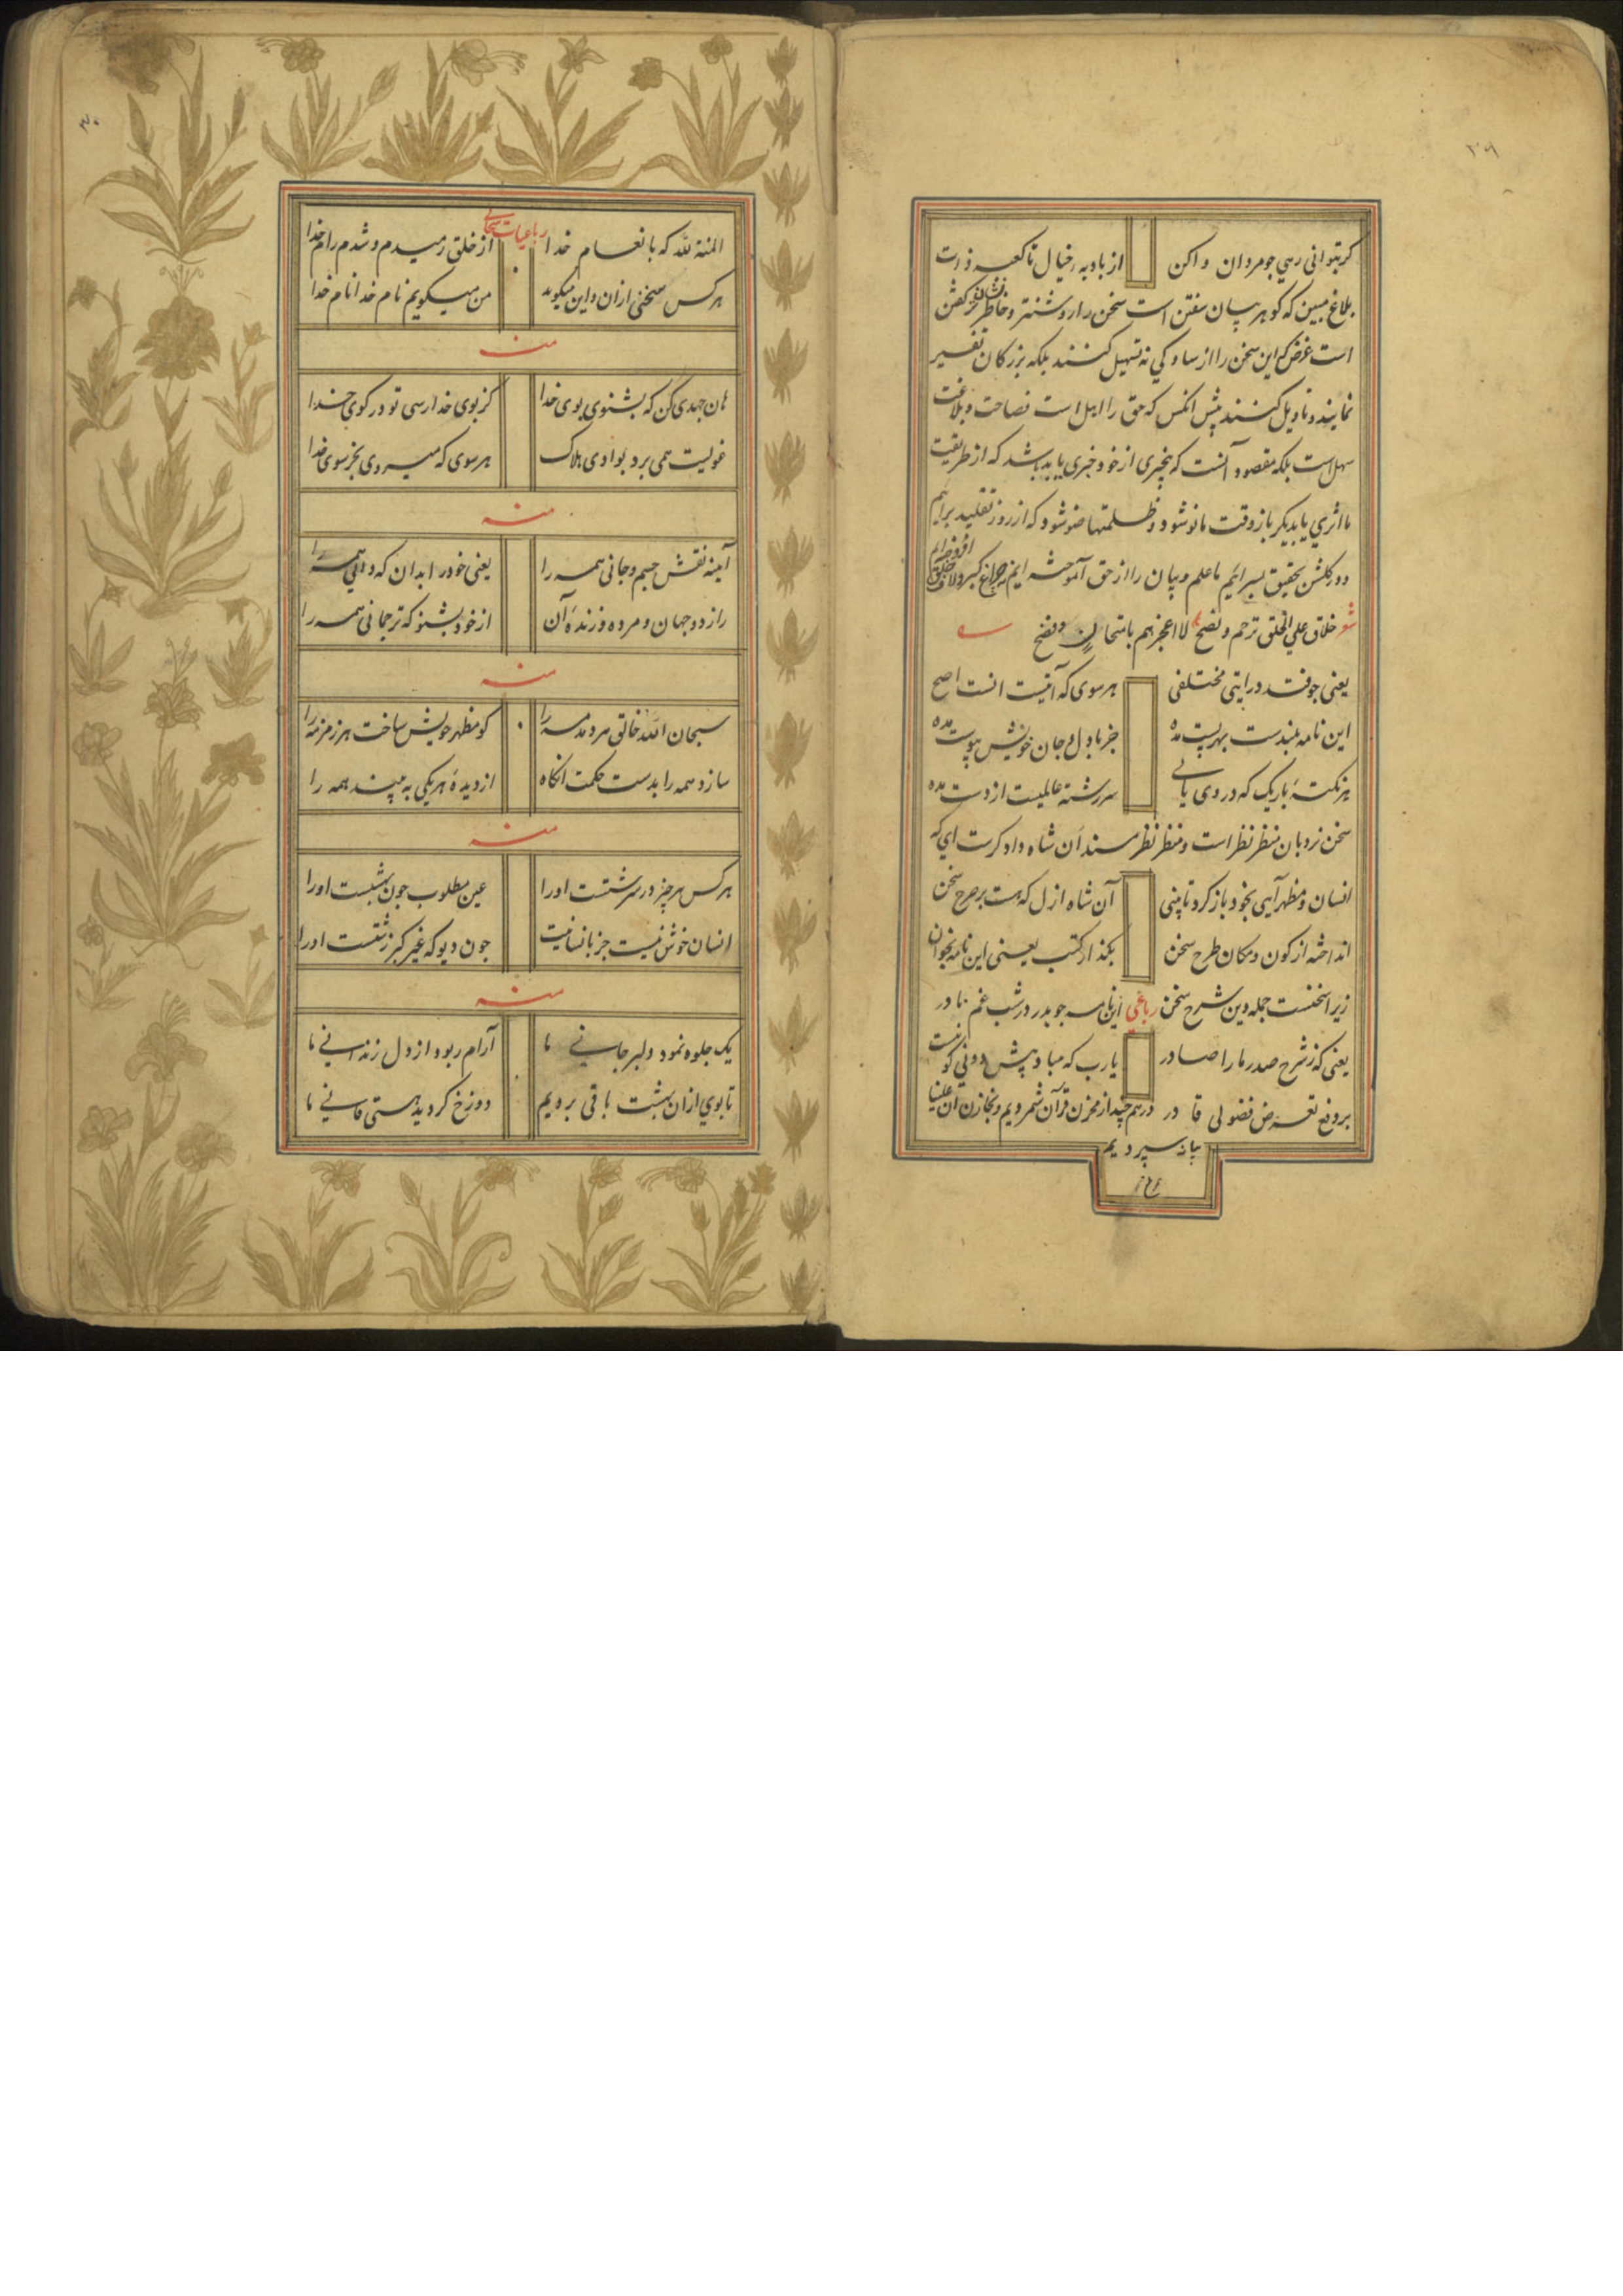 ۲۹
کر بتوانی رهی جو مردان واکن
از بادیه خیال تا کعبه ذات
بلاغ مبین که کوهر بیان سفتن است سخن را روشنتر و خاطرنشان تر کفتن
است غرض که این سخن را از سادکی نه تسهیل کنند بلکه بزرکان تفسیر
نمایند و تاویل کنند پیش انکس که حق را اهل است فصاحت و بلاغت
سهل است بلکه مقصود آنست که بیخبری از خود خبری یابد باشد که از طریقت
ما اثری یابد دیکر باز وقت ما نو شود و ظلمتها ضو شود که از روز تقلید برایم
و در کلشن تحقیق سرایم ما علم و بیان را از حق آموخته ایم نه چراغ کبر و لاف افروخته ایم
خلاق علی الخلق ترحم و نصح لا اعجزهم بامتحان
یعنی جو فتد در ایتی مختلفی
هر سوی که آنیست انست اصح
این نامه بلندست بهر پست مده
جز با دل و جان خویش پیوست مده
هر نکتهٔ باریک که در وی یابی
سررشته عالمیست از دست مده
سخن نردبان منظر نظر است و منظر نظر مسند آن شاه دادکرست ای که
انسان و مظهر آیی بخود باز کرد تا بینی
آن شاه ازل که هست بر صرح سخن
انداخته از کون و مکان طرح سخن
بکذار کتب یعنی این نامه بخوان
زیرا سخنست جمله دین شرح سخن رباعی این نامه جو بدر در شب غم نادر
یعنی که ز شرح صدر ما را صادر
یارب که مباد پیش دونی کو نیست
بر دفع تعرض فضولی قادر در هم چید از مخزن قرآن شمردیم و بخازن آن
سپردیم
۳۰
رباعیات سحابی
المنة لله که بانعام خدا
از خلق رمیدم و شدم رام خدا
هر کس سخنی از ان و این میکوید
من میکویم نام خدا نام خدا
منه
هان جهدی کن که بشنوی بوی خدا
کز بوی خدا رسی تو در کوی خدا
غولیت همی برد بوادی هلاک
هر سوی که میروی بجز سوی خدا
منه
آینه نقش جسم و جانی همه را
یعنی خود را بدان که دانی همه را
راز دو جهان و مرده و زندهٔ آن
از خود بشنو که ترجمانی همه را
منه
سبحان الله خالق مرد و مه را
کو مظهر خویش ساخت هر زمزمه را
سازد همه را بدست حکمت انکاه
از دیدهٔ هر یکی به بیند همه را
منه
هر کس هر چیز در سرشتست او را
عین مطلوب جون بهشتست او را
انسان خوش نیست جز بانسانیت
جون دیو که غیر کبر زشتست او را
منه
یک جلوه نمود دلبر جانی ما
آرام ربود از دل زندانی ما
تا بوی ازان بهشت باقی بردیم
دوزخ کردید هستی فانی ما